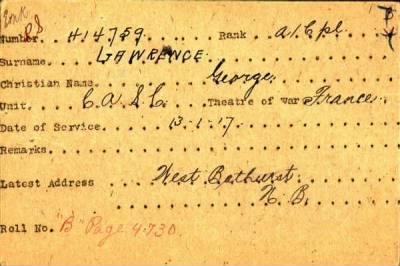 Number 414759 Rank a/Cpl.
Surname LAWRENCE
Christian Name George.
Unit. C.A.S.C. Theatre of War France.
Date of Service. 13-1-17.
Remarks.
Latest Address West Bathurst.
N.B.
Roll No. "B" Page 4730